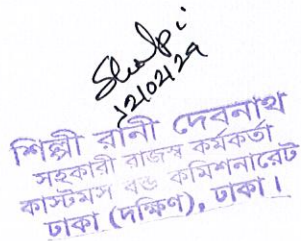 Shilpi
12/02/29
শিল্পী রানী দেবনাথ
সহকারী রাজস্ব কর্মকর্তা
কাস্টমস বন্ড কমিশনারেট
ঢাকা (দক্ষিণ), ঢাকা।